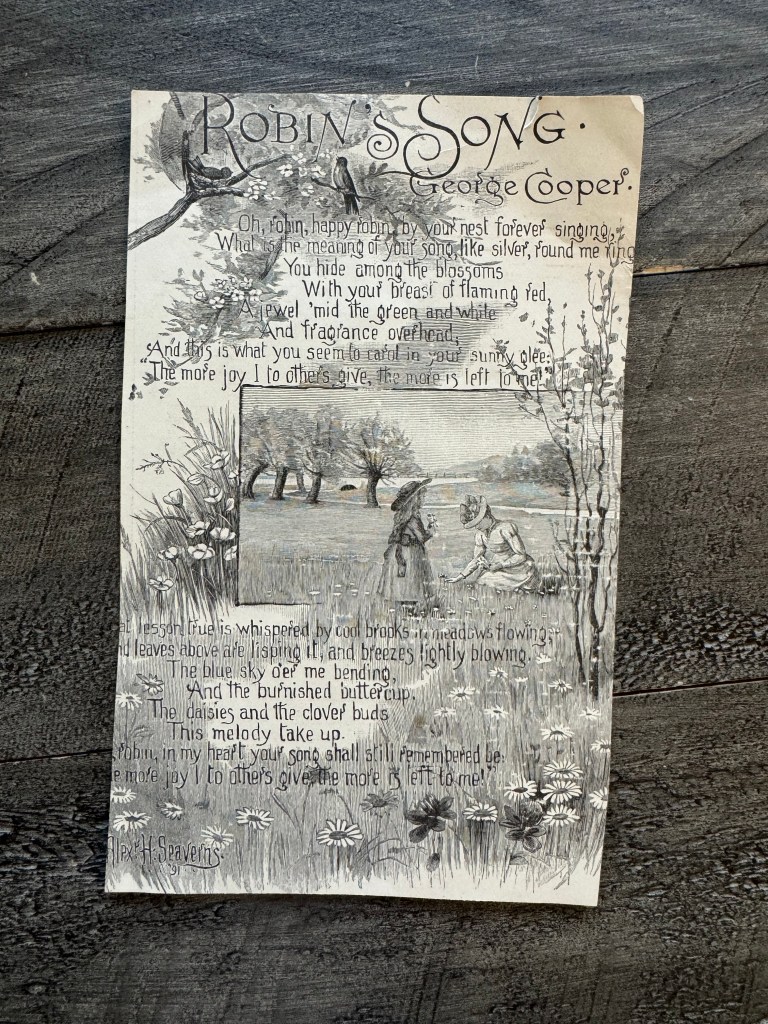 ROBIN'S SONG.
George Cooper.
Oh, robin, happy robin, by your nest forever singing,
What is the meaning of your song, like silver, round me ring
You hide among the blossoms
With your breast of flaming red,
A jewel 'mid the green and white
And fragrance overhead,
And this is what you seem to carol in your sunny glee:
"The more joy I to others give, the more is left to me!"
at lesson true is whispered by cool brooks in meadows flowing;
nd leaves above are lisping it, and breezes lightly blowing.
The blue sky o'er me bending,
And the burnished buttercup,
The daisies and the clover buds
This melody take up.
robin, in my heart your song shall still remembered be:
e more joy I to others give, the more is left to me!"
Alex. H. Seaverns.
91